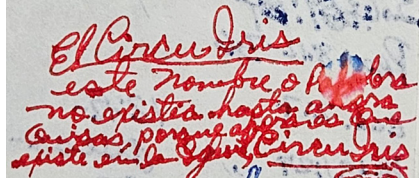 El Circu Iris
este nombre o Palabra
no existia hasta ahora
Quisas, porque ahora es que
existe en la
Circu Iris